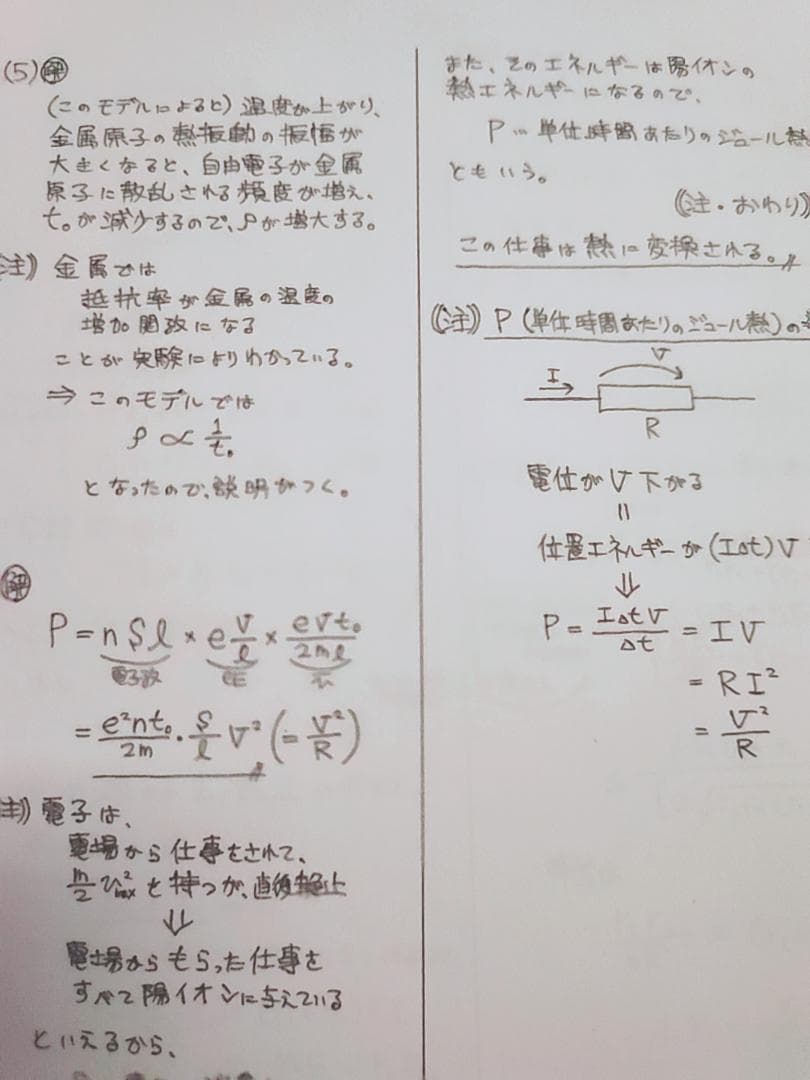 (5) 解
(このモデルによると) 温度が上がり、
金属原子の熱振動の振幅が
大きくなると、自由電子が金属
原子に散乱される頻度が増え、
t₀が減少するので、ρが増大する。
注) 金属では
抵抗率が金属の温度の
増加関数になる
ことが実験によりわかっている。
⇒ このモデルでは
ρ ∝ 1/t₀
となったので、説明がつく。
解
P = nSl × e V/l × eVt₀/2ml
電子数
= e²nt₀/2m · S/l V² (= V²/R)
注) 電子は、
電場から仕事をされて、
m/2 v²max を持つが、直後静止
⇓
電場からもらった仕事を
すべて陽イオンに与えている
といえるから、
また、そのエネルギーは陽イオンの
熱エネルギーになるので、
P … 単位時間あたりのジュール熱
ともいう。
(注・おわり)
この仕事は熱に変換される。
(注) P (単位時間あたりのジュール熱) の
V
I
R
電位が V 下がる
||
位置エネルギーが (IΔt) V
⇓
P = IΔtV/Δt = IV
= RI²
= V²/R